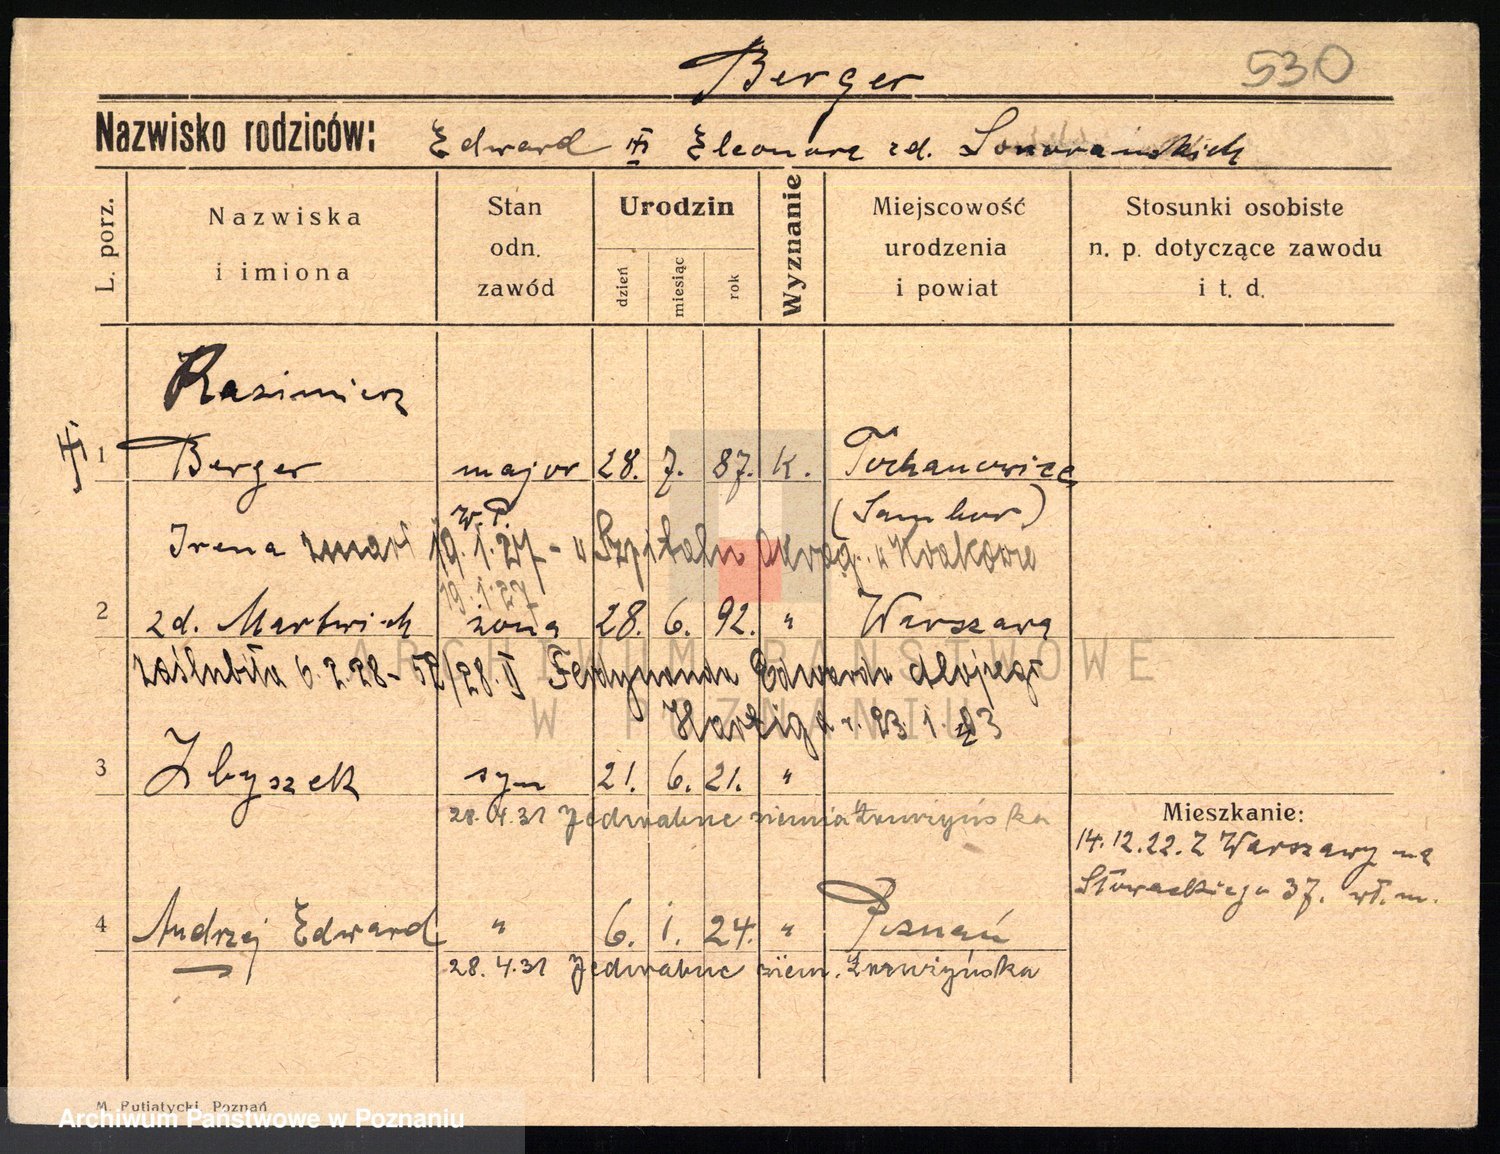 530
Berger
Nazwisko rodziców: Edward i Eleonora zd.
L. porz.
Nazwiska i imiona
Stan odn. zawód
Urodzin
dzień
miesiąc
rok
Wyznanie
Miejscowość urodzenia i powiat
Stosunki osobiste n. p. dotyczące zawodu i t. d.
Kazimierz
1 Berger major 28. 7. 87. K. Tochanowice
W. P. (Sambor)
Irena zmarł 19.1.27 - w Szpitalu Okręg. w Krakowie
19.1.27
2 zd. Martwich żona 28. 6. 92. " Warszawa
zaślubiła 6.2.28 - 52/28. II Ferdynanda Edwarda Alojzego
Hartiga 23.1.93
3 Zbyszek syn 21. 6. 21. "
28.4.31 Jedwabne ziemia Łomżyńska
Mieszkanie:
14.12.22. Z Warszawy na
Słowackiego 37. wł. m.
4 Andrzej Edward " 6. 1. 24. " Poznań
28.4.31 Jedwabne ziem. Łomżyńska
M. Putiatycki, Poznań
ARCHIWUM PAŃSTWOWE
W POZNANIU
Archiwum Państwowe w Poznaniu